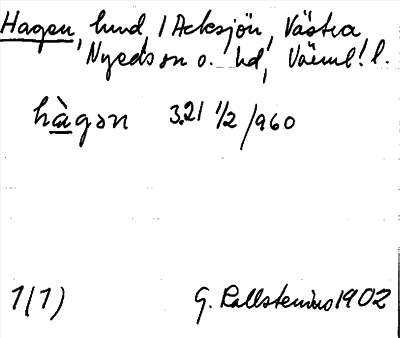 Hagen, hund, / Acksjön, Västra
Nyeds sn o. hd, Värml. l.
hàgən 3.21 1/2 /960
1(1) G. Kallstenius 1902